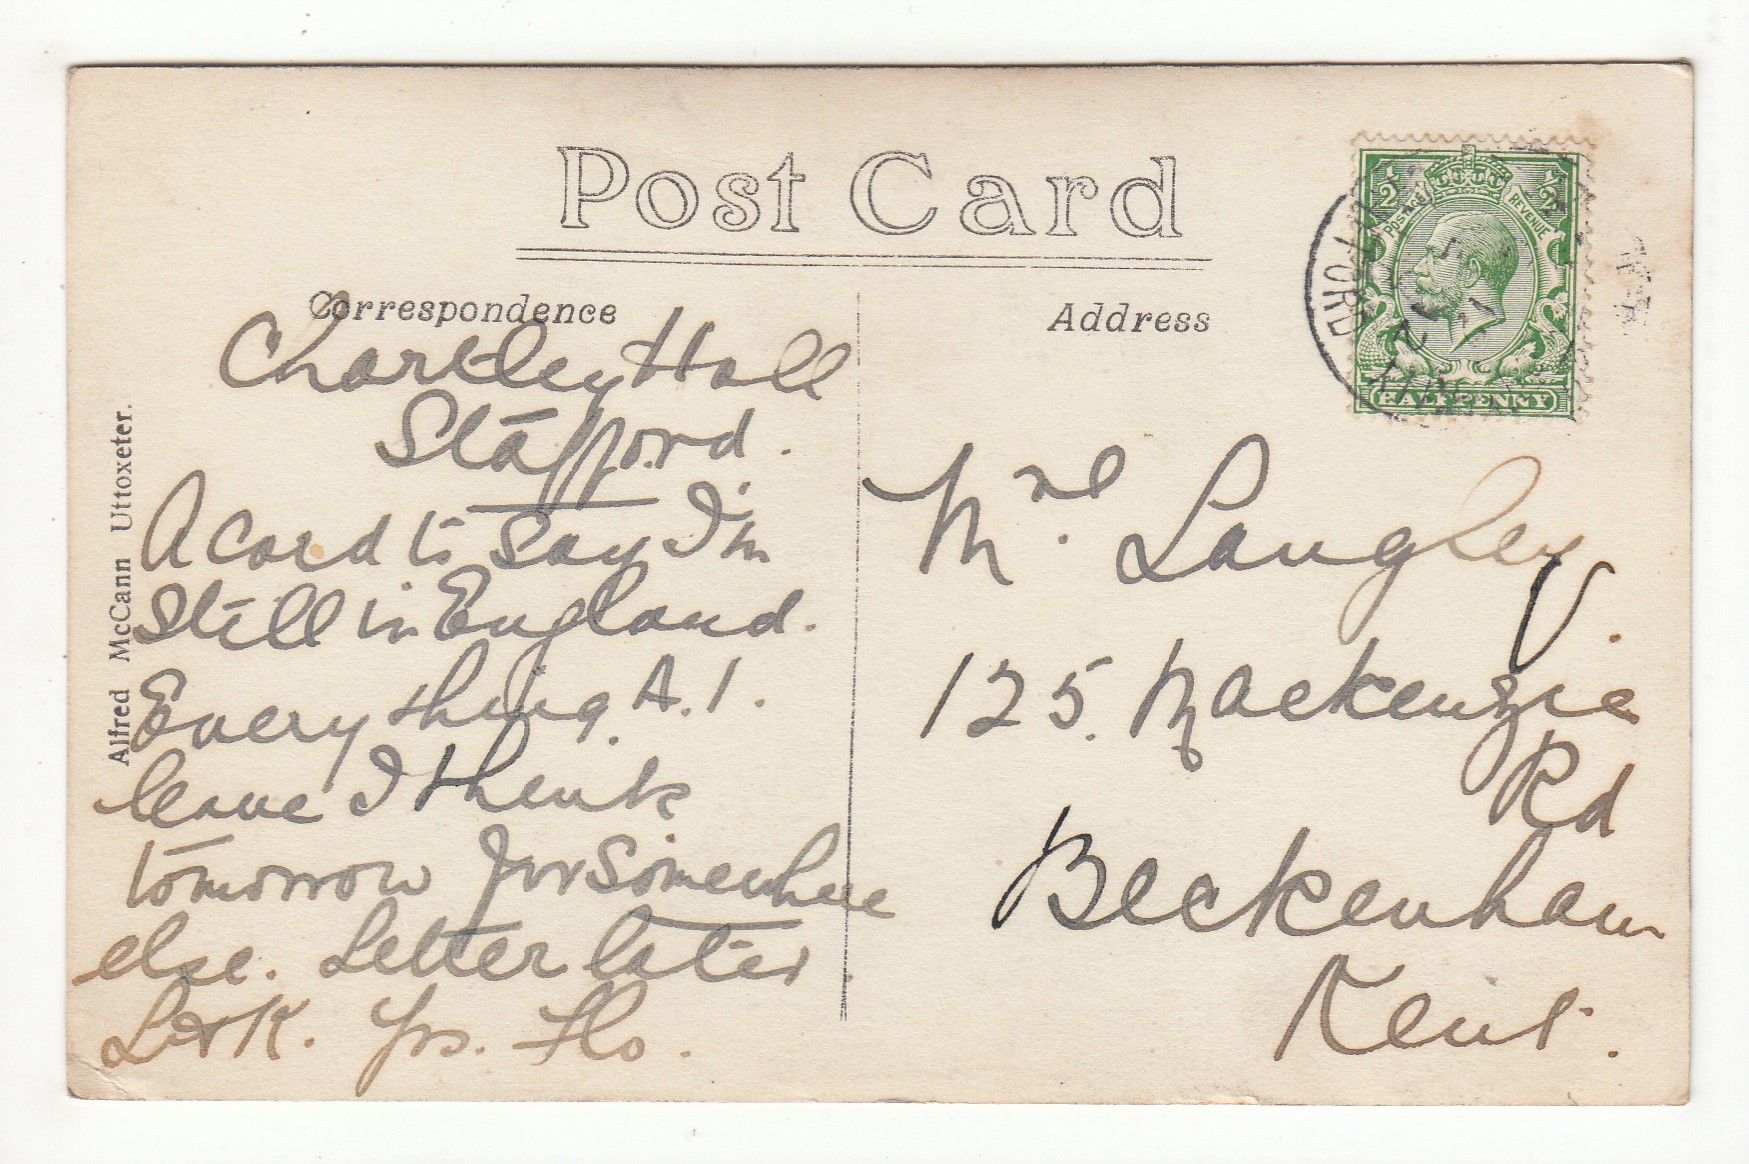 Post Card
Correspondence
Address
Alfred McCann Uttoxeter.
Chartley Hall
Stafford.
A card to say I'm
still in England.
Everything A.1.
leave I think
tomorrow for somewhere
else. Letter later.
L & K. Yrs. Flo.
Mrs. Langley
125. Mackenzie
Rd
Beckenham
Kent.
½
½
POSTAGE
REVENUE
HALFPENNY